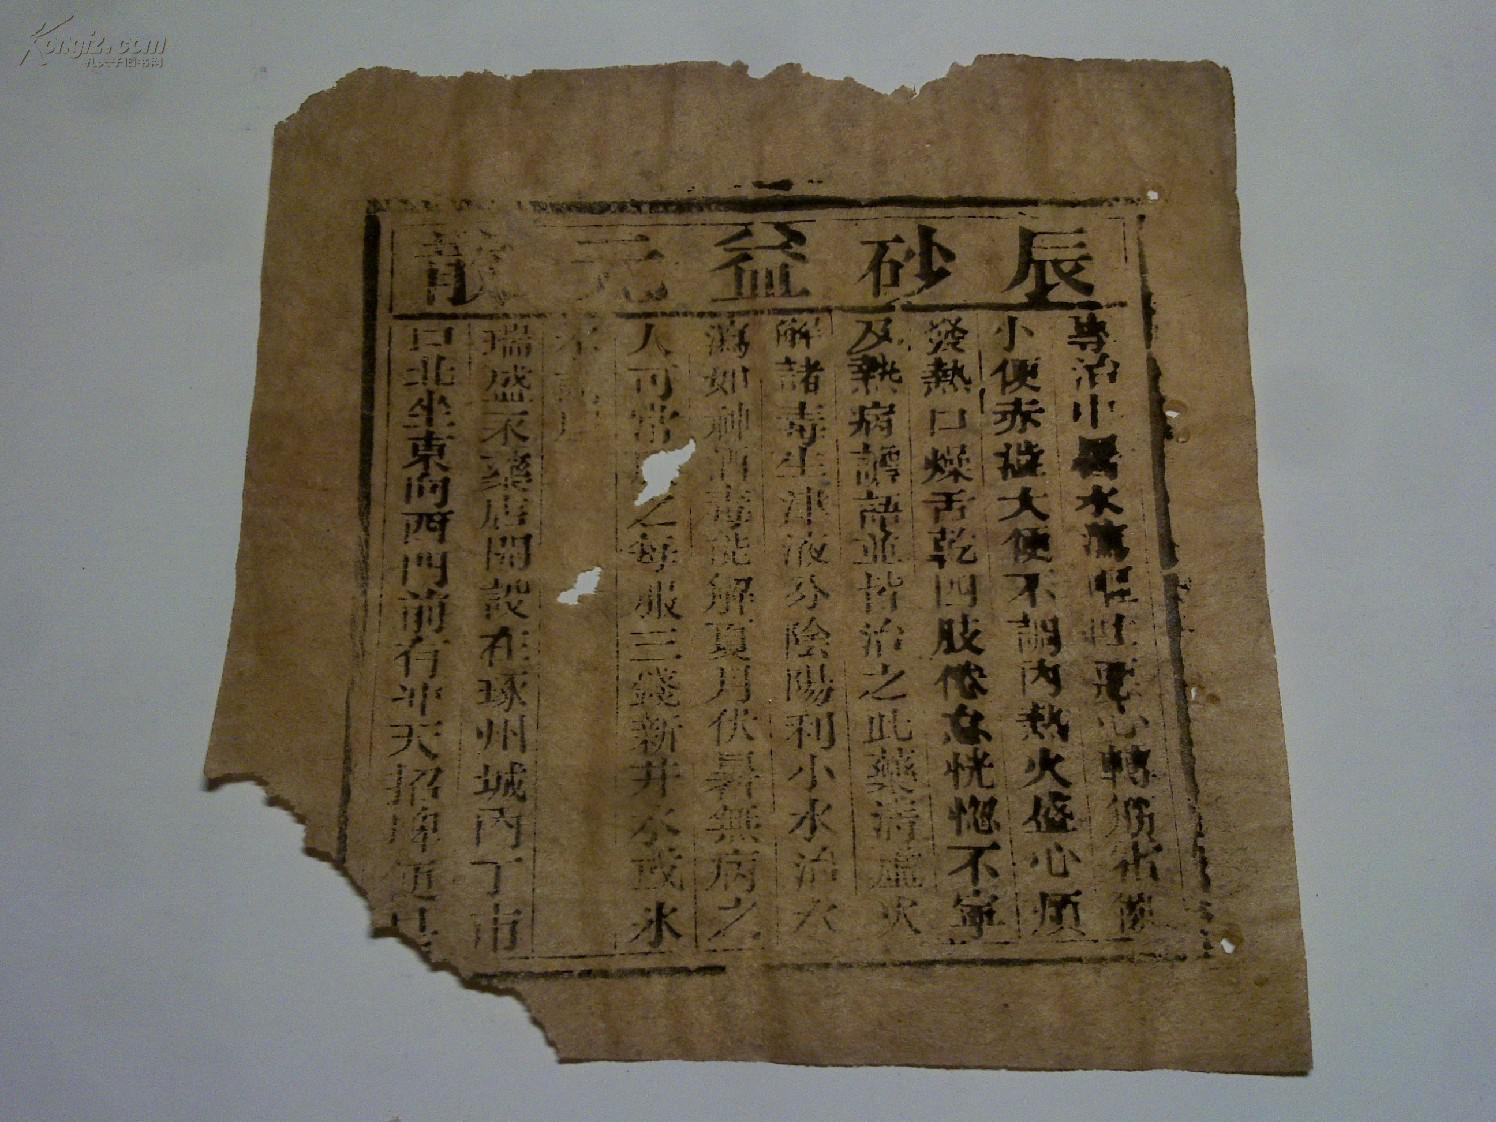 辰砂益元散
專治中暑水瀉嘔吐惡心轉筋霍
小便赤澁大便不調內熱火盛心煩
發熱口燥舌乾四肢倦怠恍惚不寧
及熱病譫語並皆治之此藥清虛火
解諸毒生津液分陰陽利小水治水
瀉如神消毒能解夏月伏暑無病之
人可常服之每服三錢新井水或氷
水
瑞盛永藥店開設在琢州城內丁市
口北坐東向西門前有冲天招牌便是
Kongfz.com
孔夫子旧书网